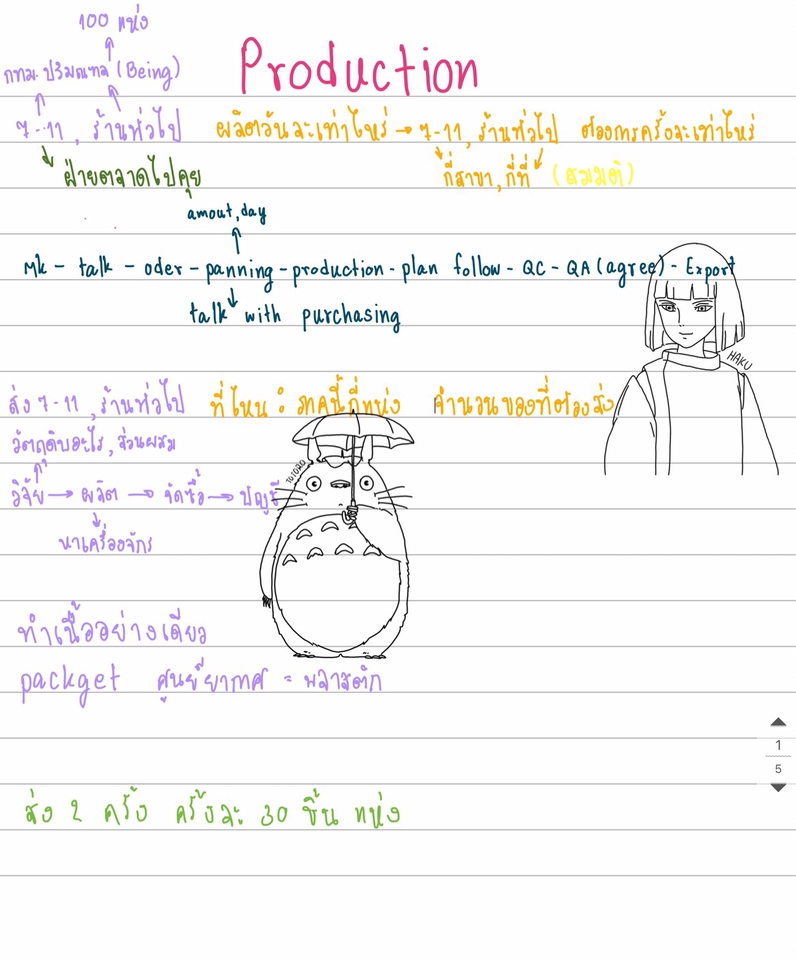 100 แห่ง
กทม. ปริมณฑล (Being)
Production
7-11, ร้านทั่วไป ผลิตวันละเท่าไหร่ → 7-11, ร้านทั่วไป ต้องการครั้งละเท่าไหร่
ฝ่ายตลาดไปคุย กี่สาขา, กี่ที่ (สมมติ)
amout, day
Mk - talk - oder - panning - production - plan follow - QC - QA (agree) - Export
talk with purchasing
HAKU
ส่ง 7-11, ร้านทั่วไป ที่ไหน : ภาคนี้กี่แห่ง จำนวนของที่ต้องส่ง
วัตถุดิบอะไร, ส่วนผสม
TOTORO
วิจัย → ผลิต → จัดซื้อ → บัญชี
หาเครื่องจักร
ทำเนื้ออย่างเดียว
packget ศูนย์ยากาศ = พลาสติก
1
5
ส่ง 2 ครั้ง ครั้งละ 30 ชิ้น แห่ง